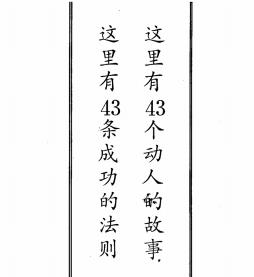 这里有43个动人的故事
这里有43条成功的法则